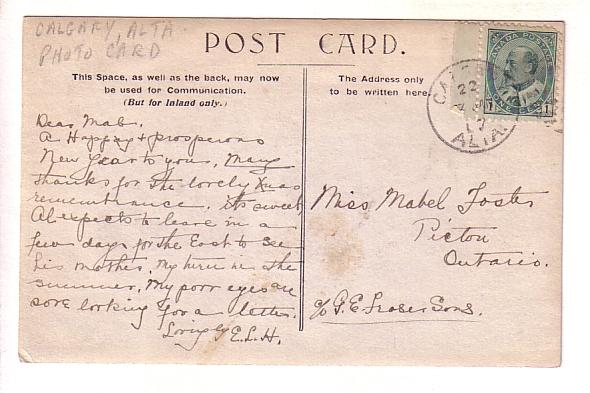 CALGARY, ALTA
PHOTO CARD
POST CARD.
This Space, as well as the back, may now
be used for Communication.
(But for Inland only.)
The Address only
to be written here
CANADA POSTAGE
ONE CENT
1 1
CAL
22
17
ALTA.
Dear Mab.
A Happy & prosperous
New Year to you, Many
thanks for the lovely Xmas
remembrance. its sweet,
Al expects to leave in a
few days for the East to see
his mother. My turn in the
summer. My poor eyes are
sore looking for a letter.
Lovingly E.L.H.
Miss Mabel Foster
Picton
Ontario.
c/o G.E. Fraser Sons.